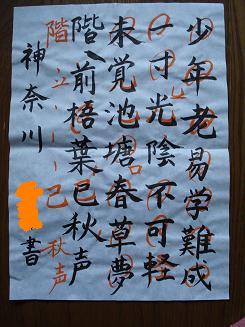 少年老易学難成
一寸光陰不可軽
未覚池塘春草夢
階前梧葉已秋声
階
立
己
秋声
神奈川
書